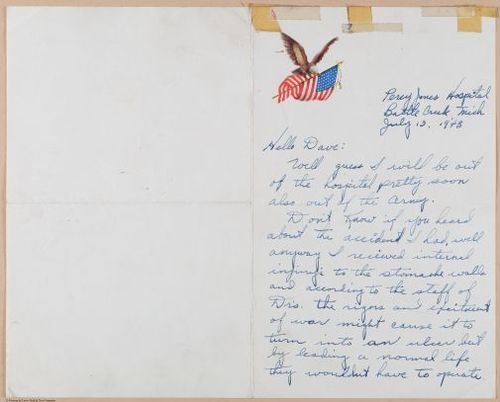 Percy Jones Hospital
Battle Creek Mich
July 12, 1943
Hello Dave:
Well guess I will be out
of the hospital pretty soon
also out of the Army.
Don't know if you heard
about the accident I had, well
anyway I recieved internal
injurys to the stomache walls
and according to the staff of
Drs. the rigors and excitment
of war might cause it to
turn into an ulcer but
by leading a normal life
they wouldnt have to operate.